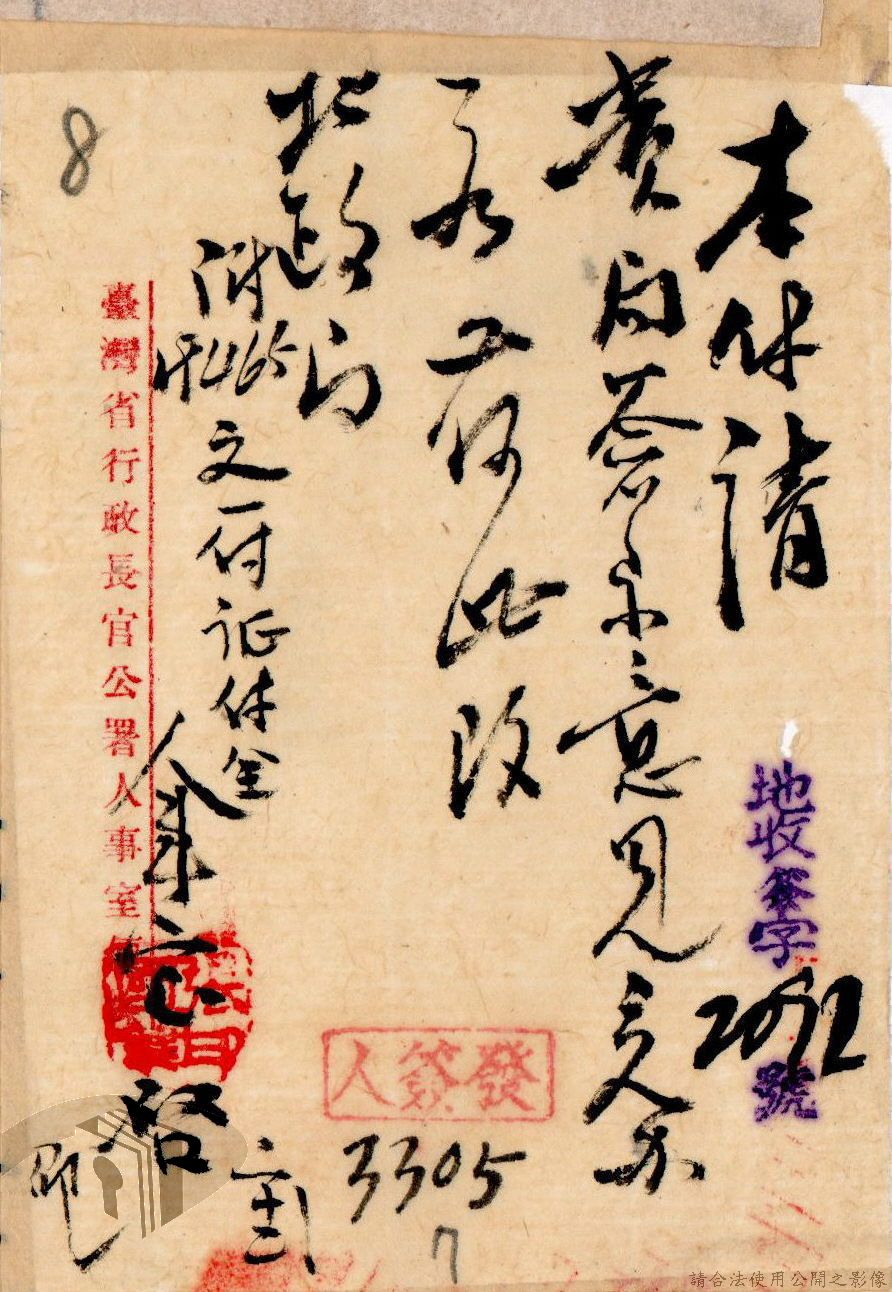 本件請
貴局簽示意見
為荷此致
地政局
附 465 文一付証件全
人事室
啓
臺灣省行政長官公署人事室
地收簽字2092號
發簽人
3305
8
7
請合法使用公開之影像